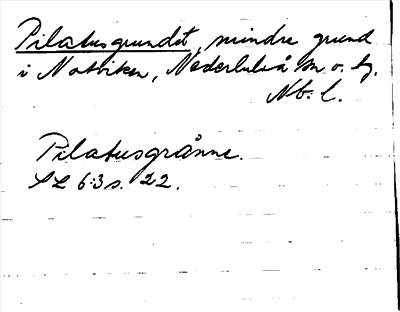 Pilatusgrundet, mindre grund
i Notviken, Nederluleå sn o. hg.
Nb. l.
Pilatusgrånne.
SL 6:3 s. 22.